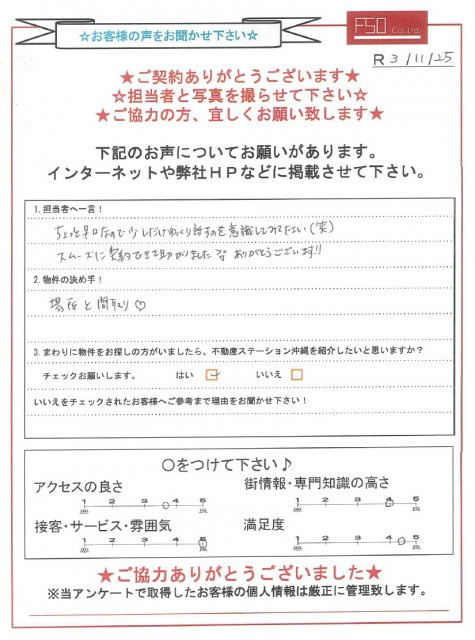 ☆お客様の声をお聞かせ下さい☆
FSO Co.,Ltd.
R 3/11/25
★ご契約ありがとうございます★
☆担当者と写真を撮らせて下さい☆
★ご協力の方、宜しくお願い致します★
下記のお声についてお願いがあります。
インターネットや弊社HPなどに掲載させて下さい。
1. 担当者へ一言!
ちょっと早口なので少しだけゆっくり話すのを意識してみて下さい(笑)
スムーズに契約できて助かりました ありがとうございます!!
2. 物件の決め手!
場所と間取り♡
3. まわりに物件をお探しの方がいましたら、不動産ステーション沖縄を紹介したいと思いますか?
チェックお願いします。 はい ☑ いいえ □
いいえをチェックされたお客様へご参考まで理由をお聞かせ下さい!
〇をつけて下さい♪
アクセスの良さ 街情報・専門知識の高さ
1 2 3 4 5 1 2 3 4 5
悪 良 悪 良
接客・サービス・雰囲気 満足度
1 2 3 4 5 1 2 3 4 5
悪 良 悪 良
★ご協力ありがとうございました★
※当アンケートで取得したお客様の個人情報は厳正に管理致します。